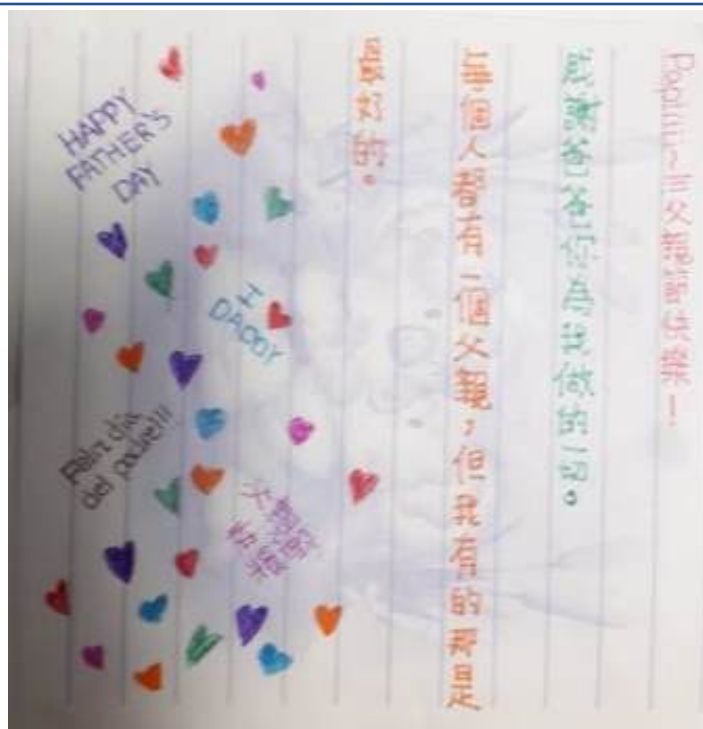 Papiii~三父親節快樂！
感謝爸爸你為我做的一切。
每個人都有一個父親，但我有的那是
最好的。
HAPPY
FATHER'S
DAY
I
DADDY
Feliz día
del padre!!!
父親節
快樂